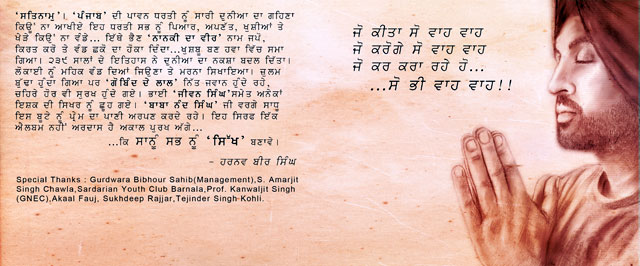 'ਸਤਿਨਾਮੁ'। 'ਪੰਜਾਬ' ਦੀ ਪਾਵਨ ਧਰਤੀ ਨੂੰ ਸਾਰੀ ਦੁਨੀਆ ਦਾ ਗਹਿਣਾ
ਕਿਉਂ ਨਾ ਆਖੀਏ ਇਹ ਧਰਤੀ ਸਭ ਨੂੰ ਪਿਆਰ, ਅਪਣੱਤ, ਖੁਸ਼ੀਆਂ ਤੇ
ਖੇੜੇ ਕਿਉਂ ਨਾ ਵੰਡੇ... ਇੱਥੇ ਭੈਣ 'ਨਾਨਕੀ ਦਾ ਵੀਰ' ਨਾਮ ਜਪੋ,
ਕਿਰਤ ਕਰੋ ਤੇ ਵੰਡ ਛਕੋ ਦਾ ਹੋਕਾ ਦਿੰਦਾ...ਖੁਸ਼ਬੂ ਬਣ ਹਵਾ ਵਿੱਚ ਸਮਾ
ਗਿਆ। ੨੩੯ ਸਾਲਾਂ ਦੇ ਇਤਿਹਾਸ ਨੇ ਦੁਨੀਆ ਦਾ ਨਕਸ਼ਾ ਬਦਲ ਦਿੱਤਾ।
ਲੋਕਾਈ ਨੂੰ ਮਹਿਕ ਵੰਡ ਦਿਆਂ ਜਿਉਣਾ ਤੇ ਮਰਨਾ ਸਿਖਾਇਆ। ਜ਼ੁਲਮ
ਬੁੱਢਾ ਹੁੰਦਾ ਗਿਆ ਪਰ 'ਗੋਬਿੰਦ ਦੇ ਲਾਲ' ਨਿੱਤ ਜਵਾਨ ਹੁੰਦੇ ਰਹੇ,
ਚਹਿਰੇ ਹੋਰ ਵੀ ਸੁਰਖ ਹੁੰਦੇ ਗਏ। ਭਾਈ 'ਜੀਵਨ ਸਿੰਘ' ਸਮੇਤ ਅਨੇਕਾਂ
ਇਸ਼ਕ ਦੀ ਸਿਖਰ ਨੂੰ ਛੂਹ ਗਏ। 'ਬਾਬਾ ਨੰਦ ਸਿੰਘ' ਜੀ ਵਰਗੇ ਸਾਧੂ
ਇਸ ਬੂਟੇ ਨੂੰ ਪ੍ਰੇਮ ਦਾ ਪਾਣੀ ਅਰਪਣ ਕਰਦੇ ਰਹੇ। ਇਹ ਸਿਰਫ ਇੱਕ
ਐਲਬਮ ਨਹੀਂ ਅਰਦਾਸ ਹੈ ਅਕਾਲ ਪੁਰਖ ਅੱਗੇ...
...ਕਿ ਸਾਨੂੰ ਸਭ ਨੂੰ 'ਸਿੱਖ' ਬਣਾਵੇ।
- ਹਰਨਵ ਬੀਰ ਸਿੰਘ
Special Thanks : Gurdwara Bibhour Sahib(Management),S. Amarjit
Singh Chawla,Sardarian Youth Club Barnala,Prof. Kanwaljit Singh
(GNEC),Akaal Fauj, Sukhdeep Rajjar,Tejinder Singh Kohli.
ਜੋ ਕੀਤਾ ਸੋ ਵਾਹ ਵਾਹ
ਜੋ ਕਰੋਂਗੇ ਸੋ ਵਾਹ ਵਾਹ
ਜੋ ਕਰ ਕਰਾ ਰਹੇ ਹੋ...
...ਸੋ ਭੀ ਵਾਹ ਵਾਹ!!